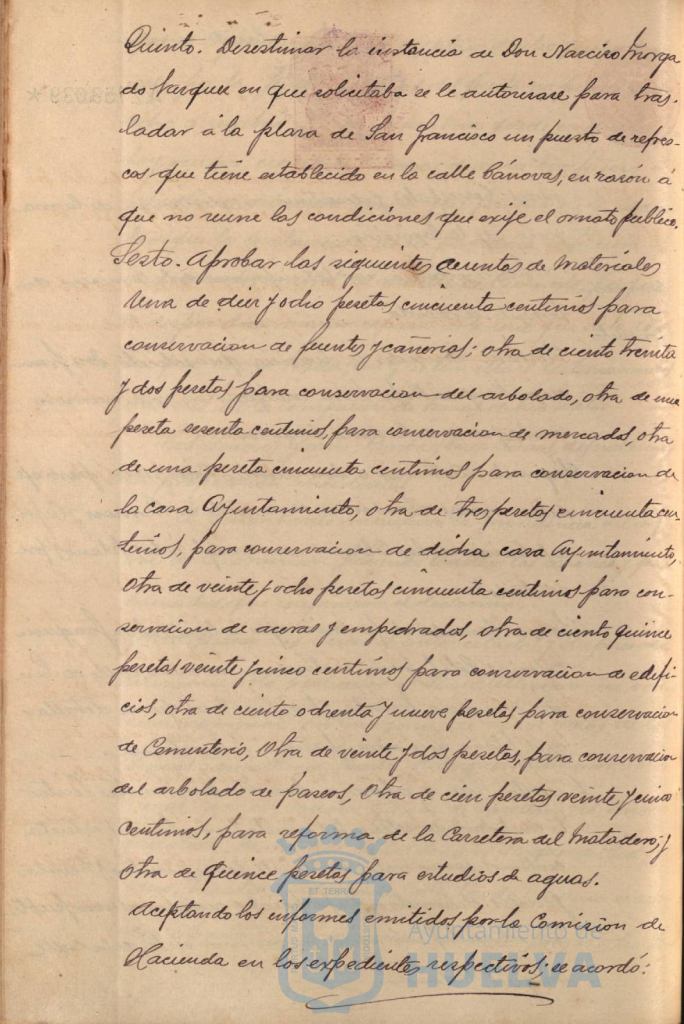 Quinto. Desestimar la instancia de Don Narciso Morga
do Kerques en que solicitaba se le autorizase para tras-
ladar á la plaza de San Francisco un puesto de refres-
cos que tiene establecido en la calle Cánovas, en razón á
que no reune las condiciones que exije el ornato publico.
Sexto. Aprobar las siguientes cuentas de materiales
Una de diez y ocho pesetas cincuenta centimos para
conservacion de fuentes y cañerias; otra de ciento treinta
y dos pesetas para conservacion del arbolado, otra de una
peseta sesenta centimos, para conservacion de mercados, otra
de una peseta cincuenta centimos para conservacion de
la casa Ayuntamiento, otra de tres pesetas cincuenta cen-
timos, para conservacion de dicha casa Ayuntamiento,
Otra de veinte y ocho pesetas cincuenta centimos para con-
servacion de aceras y empedrados, otra de ciento quince
pesetas veinte y cinco centimos para conservacion de edifi-
cios, otra de ciento ochenta y nueve pesetas para conservacion
de Cementerio, Otra de veinte y dos pesetas, para conservacion
del arbolado de paseos, Otra de cien pesetas veinte y cinco
centimos, para reforma de la Carretera del Matadero, y
otra de Quince pesetas para estudios de aguas.
Aceptando los informes emitidos por la Comision de
Hacienda en los expedientes respectivos; se acordó:
Ayuntamiento de
HUELVA